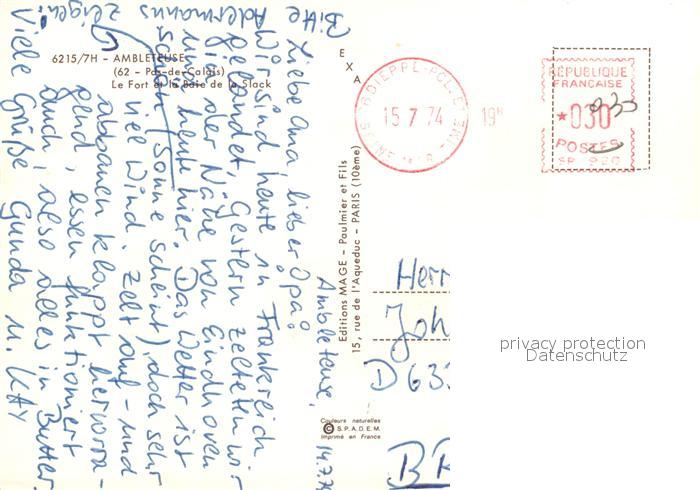 6215/7H - AMBLETEUSE
(62 - Pas-de-Calais)
Le Fort et la Baie de la Slack
Bitte
Adermanns
zeigen!
Ambleteuse,
14.7.74
Liebe Oma, lieber Opa!
Wir sind heute in Frankreich
gelandet. Gestern zelteten wir
in der Nähe von Eindhoven
heute hier. Das Wetter ist
schön (Sonne scheint), doch sehr
viel Wind. Zelt auf- und
abbauen klappt hervorra-
gend, essen funktioniert
auch, also alles in Butter
Viele Grüße Gunda u. Kay
E
X
A
Editions MAGE - Paulmier et Fils
15, rue de l'Aqueduc - PARIS (10ème)
Couleurs naturelles
© S.P.A.D.E.M.
Imprimé en France
DIEPPE-PCL-E
15 7 74
SEINE MARITIME
19H
RÉPUBLIQUE
FRANÇAISE
*030
POSTES
Herr
Joh
D 633
BR
privacy protection
Datenschutz